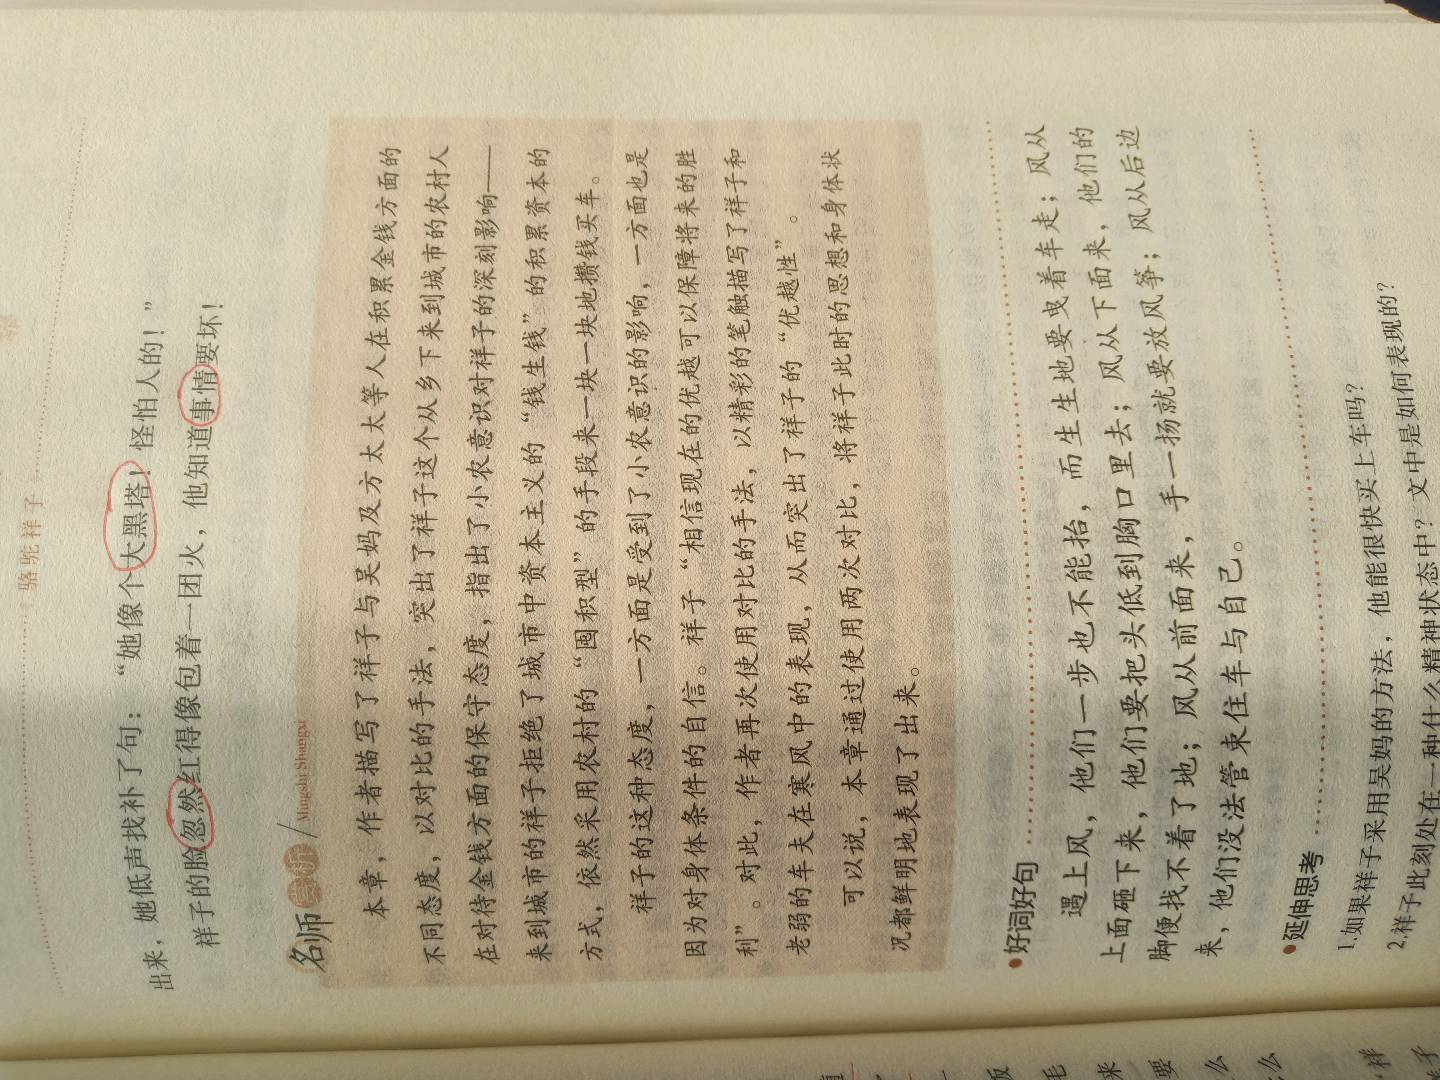 骆驼祥子
出来，她低声找补了句：“她像个大黑塔！怪怕人的！”
祥子的脸忽然红得像包着一团火，他知道事情要坏！
名师赏析 Mingshi Shangxi
本章，作者描写了祥子与吴妈及方太太等人在积累金钱方面的
不同态度，以对比的手法，突出了祥子这个从乡下来到城市的农村人
在对待金钱方面的保守态度，指出了小农意识对祥子的深刻影响——
来到城市的祥子拒绝了城市中资本主义的“钱生钱”的积累资本的
方式，依然采用农村的“囤积型”的手段来一块一块地攒钱买车。
祥子的这种态度，一方面是受到了小农意识的影响，一方面也是
因为对身体条件的自信。祥子“相信现在的优越可以保障将来的胜
利”。对此，作者再次使用对比的手法，以精彩的笔触描写了祥子和
老弱的车夫在寒风中的表现，从而突出了祥子的“优越性”。
可以说，本章通过使用两次对比，将祥子此时的思想和身体状
况都鲜明地表现了出来。
●好词好句
遇上风，他们一步也不能抬，而生生地要曳着车走；风从
上面砸下来，他们要把头低到胸口里去；风从下面来，他们的
脚便找不着了地；风从前面来，手一扬就要放风筝；风从后边
来，他们没法管束住车与自己。
●延伸思考
1.如果祥子采用吴妈的方法，他能很快买上车吗？
2.祥子此刻处在一种什么精神状态中？文中是如何表现的？